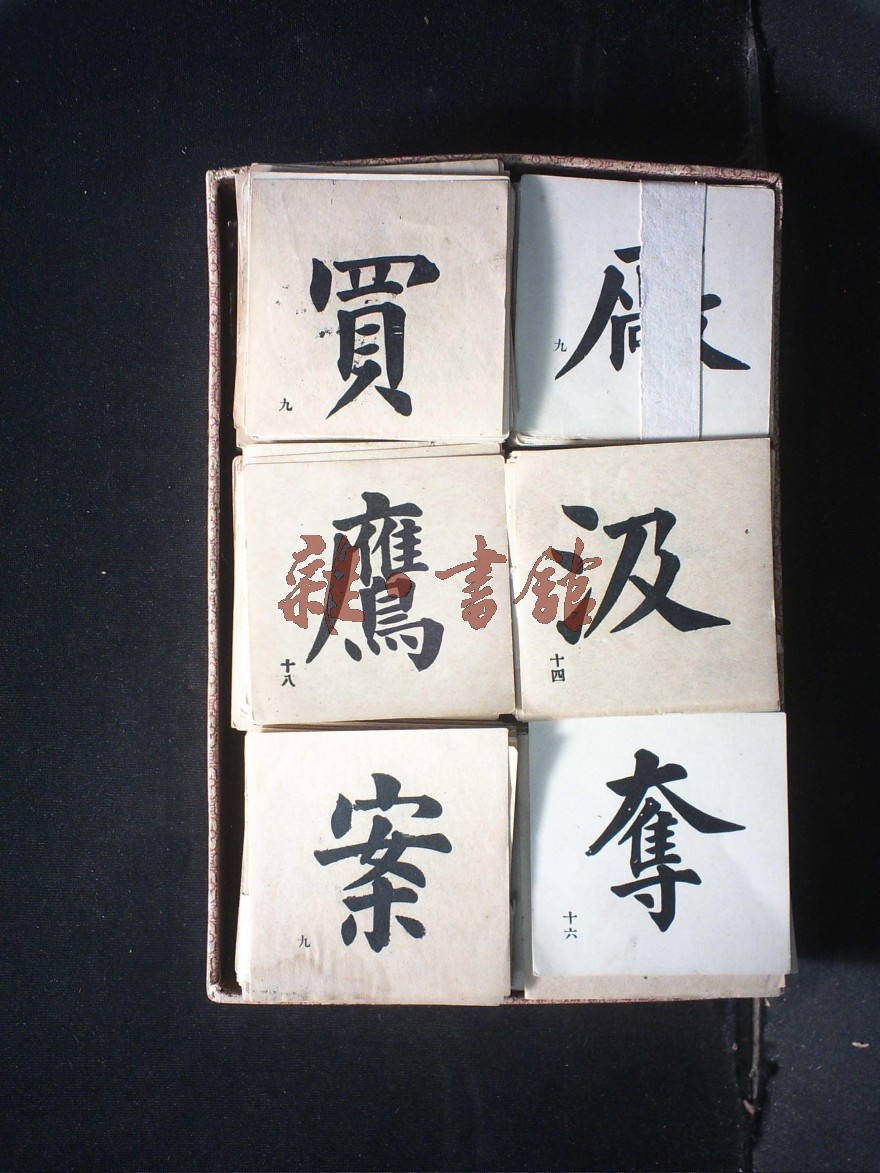 買
九
九
鷹
十八
汲
十四
案
九
奪
十六
雜·書館